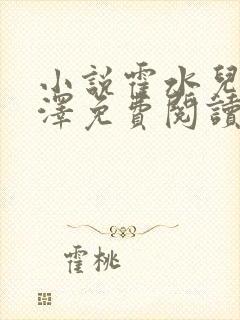 小說霍水兒
澤免費閱讀
霍桃